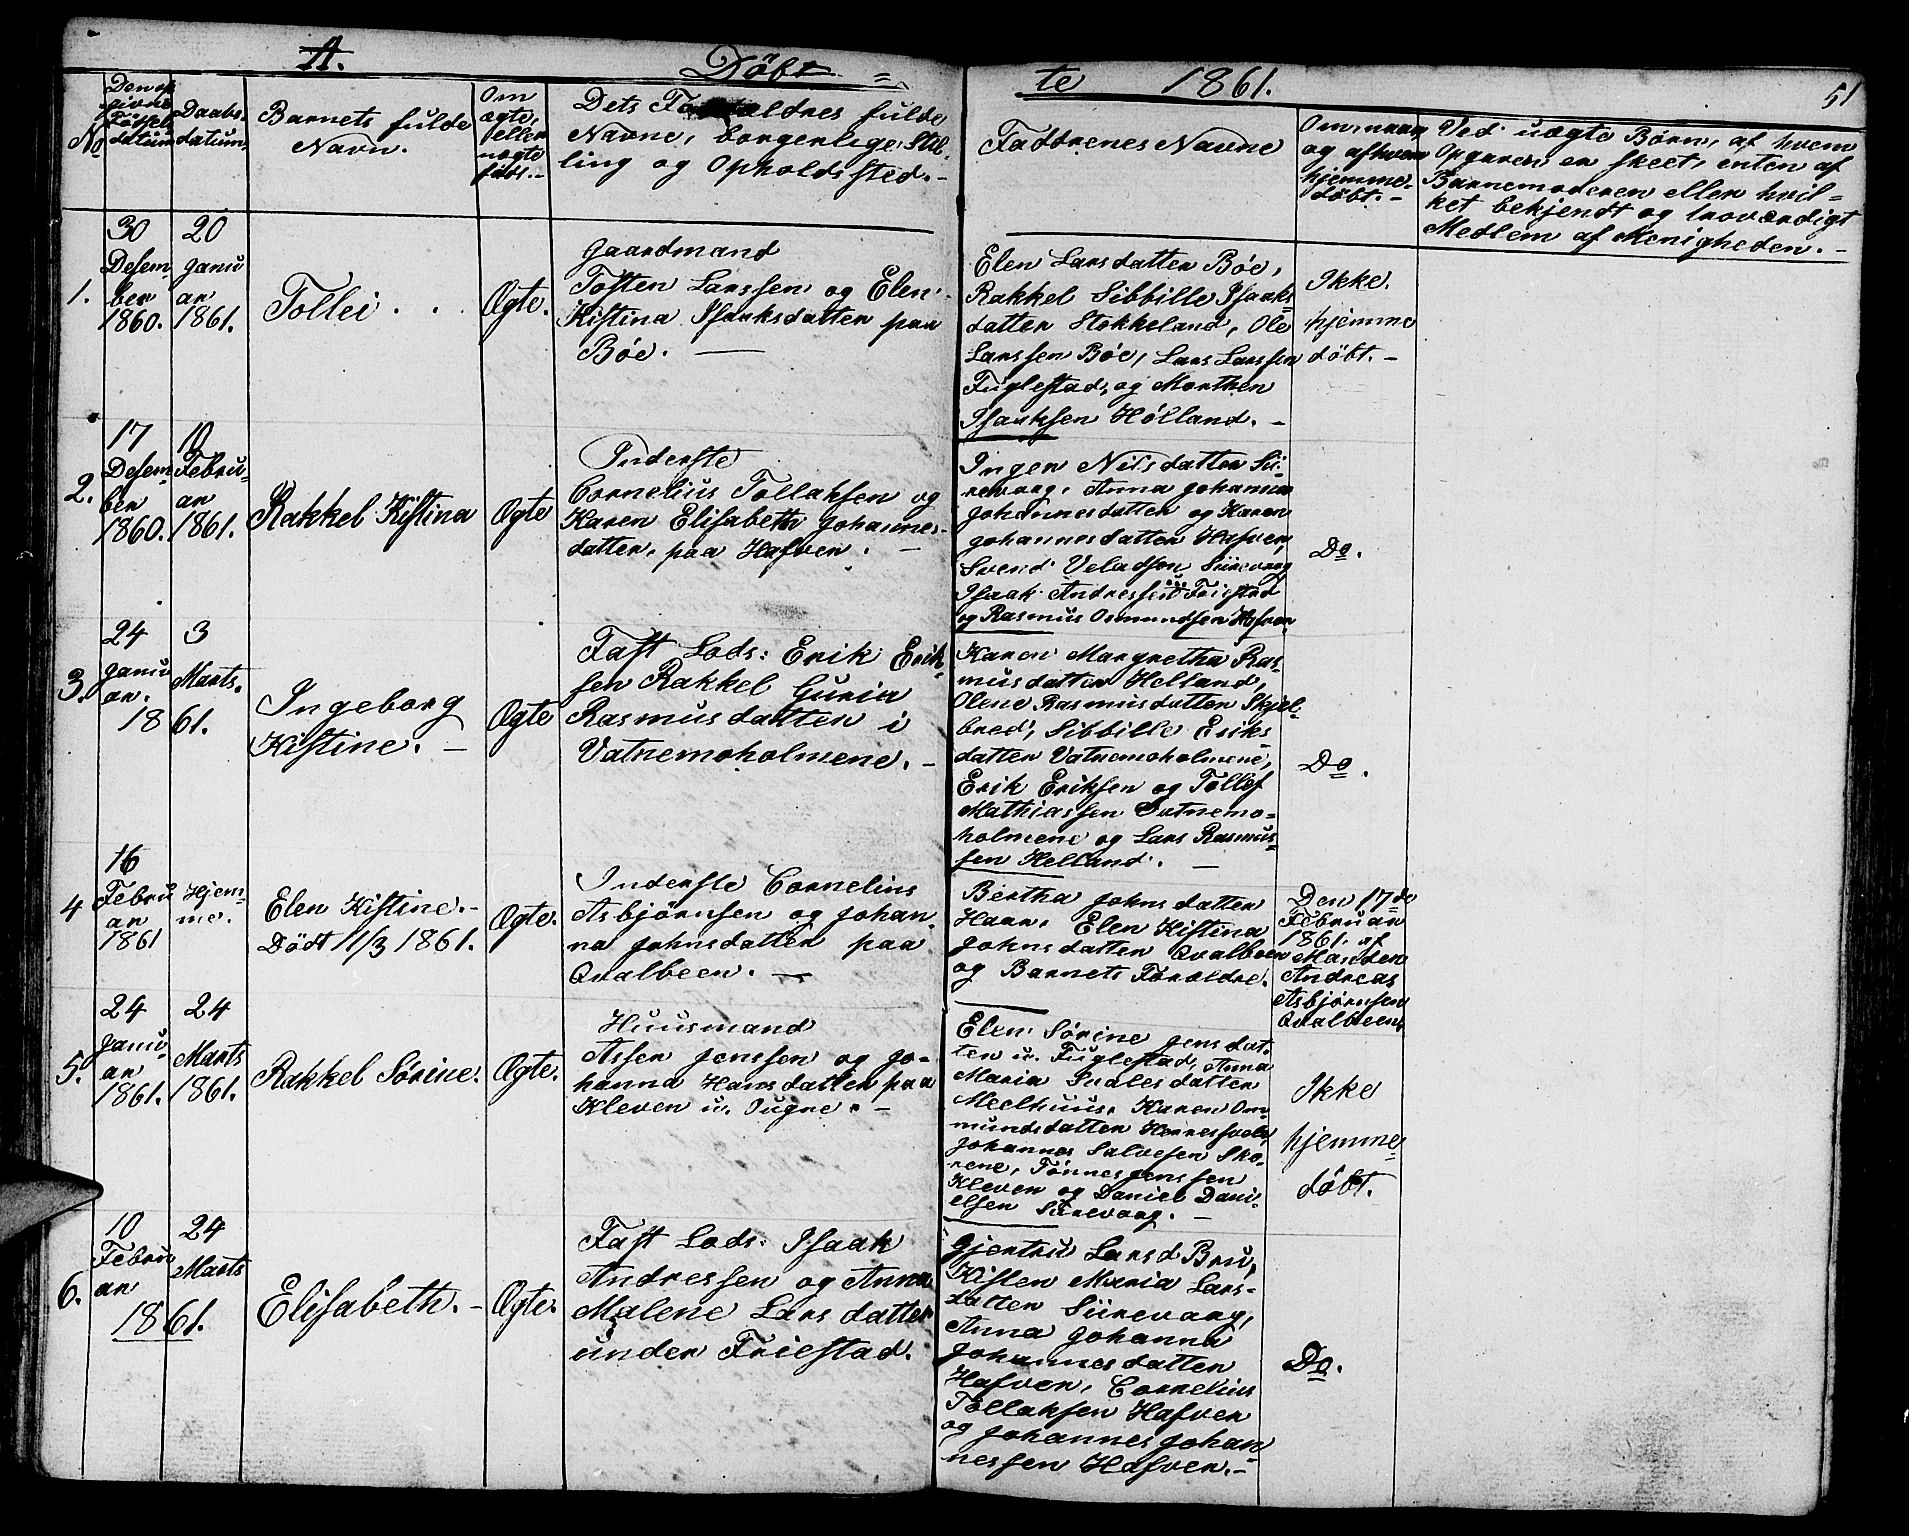 A. Döbte 1861. 51
No
Den opgivne Fötselsdatum
Daabsdatum
Barnets fulde
Navn.
Om ægte, eller uægte föds.-
Dets Forældres fulde
Navne, borgerlige Stilling og Opholdssted.-
Faddrenes Navne
Om, naar og af hvem hjemmedöbt.-
Ved uægte Børn, af hvem
Opgaven er skeet, enten af
Barnemoderen eller hvil=
ket bekjendt og troværdigt
Medlem af Menigheden.-
1.
30 Desember 1860.
20 Januar 1861.
Tollei . .
Ægte.
Gaardmand
Tosten Larssen og Elen
Kistina Isaaksdatter paa
Böe. —
Elen Larsdatter Böe,
Rakkel Sibbille Isaaks=
datter Stokkeland, Ole
Larssen Böe, Lars Larssen
Fuglestad, og Morthen
Isaaksen Hölland. -
Ikke
hjemme
döbt. -
2.
17 Desember 1860.
10 Februar 1861.
Rakkel Kistina
Ægte
Inderste
Cornelius Tollaksen og
Karen Elisabeth Johannes-
datter, paa Hafven. -
Inger Nilsdatter Si-
revaag, Anna Johanna
Johannesdatter og Karen
Johannesdatter Hafven,
Svend Veladsen Siirevaag
Isaak Andressen u Friestad
og Rasmus Osmundsen Hafven
Do.
3.
24 Januar. 1861.
3 Marts.
Ingeborg
Kistine. -
Ægte
Fast Lods: Erik Erik-
sen Rakkel Guria
Rasmusdatter i
Vatnemoholmene. -
Karen Margretha Ras-
musdatter Helland,
Olene Rasmusdatter Skjel-
bred, Sibbille Eriks-
datter Vatnemoholmene,
Erik Eriksen og Tollef
Mathiassen Vatnemo-
holmene og Lars Rasmus-
sen Helland. —
Do.
4
16 Februar 1861
Hjemme.
Elen Kistine.-
Död 11/3 1861.
Ægte.
Inderste Cornelius
Asbjörnsen og Johan-
na Johnsdatter paa
Qvalbeen. —
Bertha Johnsdatter
Haar, Elen Kistina
Johnsdatter Qvalbeen
og Barnets Forældre.
Den 17de
Februar
1861. af
Manden
Andreas
Asbjörnsen
Qvalbeen,
5.
24 Januar 1861.
24 Marts 1861.
Rakkel Sörine.
Ægte.
Huusmand
Assen Jenssen og Jo-
hanna Hansdatter paa
Kleven u. Ougne. -
Elen Sörine Jensdat-
ter u. Fuglestad, Anna
Maria Svalesdatter
Meelhuus, Karen Om-
mundsdatter
Johannes Salvesen Sko-
rene, Tönnes Jenssen
Kleven og Daniel Dani-
elsen Siirevaag. -
Ikke
hjemme
döbt.
6.
10 Februar 1861.
24 Marts
Elisabeth. -
Ægte.
Fast Lods: Isaak
Andressen og Anna
Malene Larsdatter
under Friestad.
Gjertru Larsd Bru,
Kisten Maria Lars-
datter Siirevaag,
Anna Johanna
Johannesdatter
Hafven, Cornelius
Tollaksen Hafven
og Johannes Johan
nessen Hafven. -
Do.